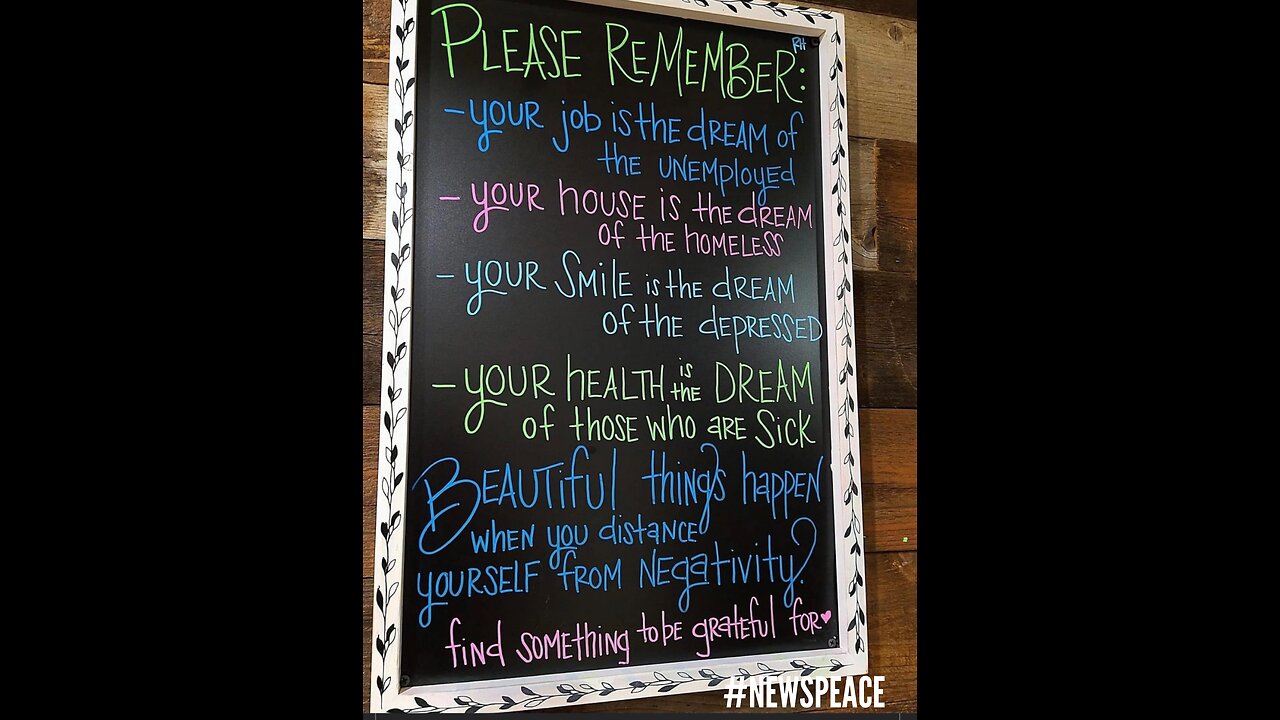 PLEASE REMEMBER:
RH
- YOUR job is the DREAM of
the UNEMployed
- YOUR HOUSE is the DREAM
of the HOMELESS
- YOUR SMILE is the DREAM
of the dEPRESSED
- YOUR HEALTH is the DREAM
of those who ARE Sick
BEAUTiful things happen
when you distance
yourself from Negativity.
find something to be grateful for ♥
#NEWSPEACE